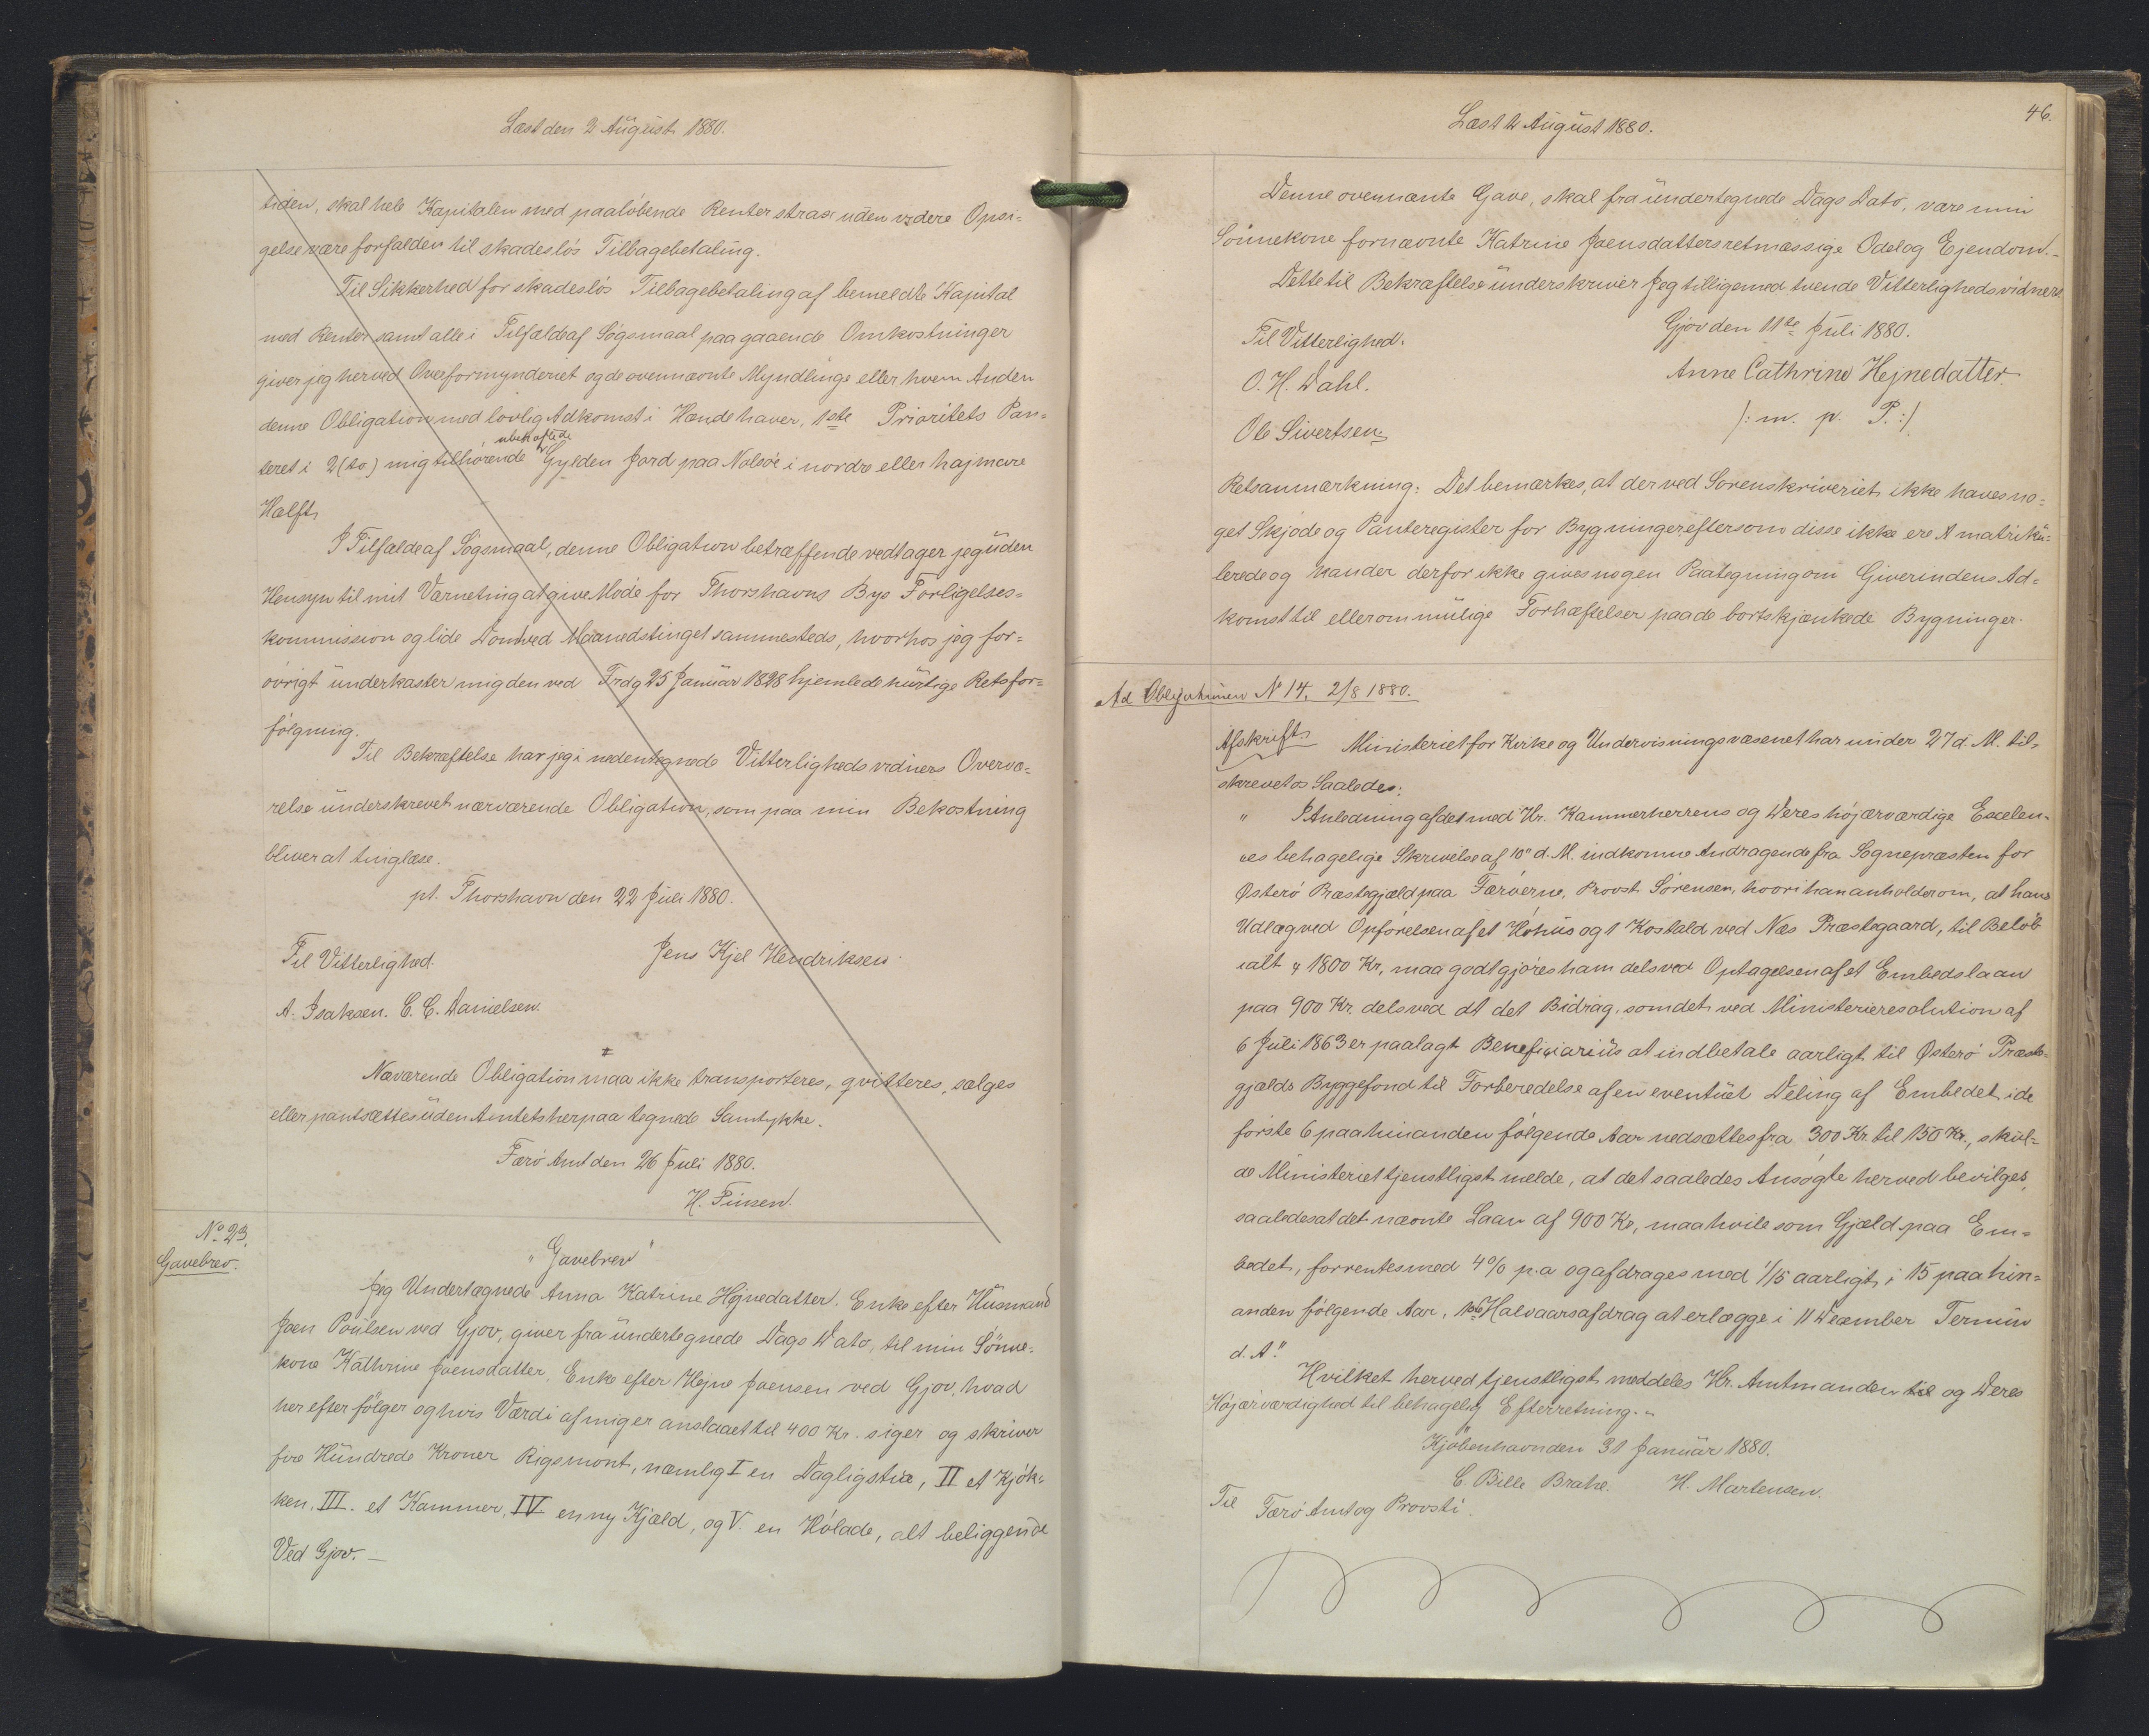 Læst den 2 August 1880.
tiden, skal hele Kapitalen med paaløbende Renter strax uden videre Opsi=
gelse være forfalden til skadesløs Tilbagebetaling.
Til Sikkerhed for skadesløs Tilbagebetaling af bemeldte Kapital
med Renter samt alle i Tilfælde af Søgsmaal paagaaende Omkostninger
giver jeg herved Overformynderiet og de ovennævnte Myndlinge eller hvem Anden
denne Obligation med lovlig Adkomst i Hænde haver, 1ste Prioritets Pan=
teret i 2 (to) mig tilhørende ubehæftede Gylden Jord paa Nolsøe i nordre eller hajmare
Halft
I Tilfælde af Søgsmaal, denne Obligation betræffende vedtager jeg uden
Hensyn til mit Værneting at give Møde for Thorshavns Byes Forligelses=
kommission og lide Dom ved Maanedstinget sammesteds, hvorhos jeg for=
øvrigt underkaster mig den ved Frdg 25 Januar 1828 hjemlede hurtige Retsfor=
følgning.
Til Bekræftelse har jeg i nedentegnede Vitterligheds vidners Overvæ=
relse underskrevet nærværende Obligation, som paa min Bekostning
bliver at tinglæse.
pt. Thorshavn den 22 Juli 1880.
Til Vitterlighed. Jens Kjel Hendriksen.
A. Isaksen. C. C. Danielsen.
Næværende Obligation maa ikke transporteres, qvitteres, sælges
eller pantsættes uden Amtets herpaa tegnede Samtykke.
Færø Amt den 26 Juli 1880.
H. Finsen.
No 23.
Gavebrev.
"Gavebrev"
Jeg Undertegnede Anna Katrine Hejnedatter. Enke efter Husmand
Joen Poulsen ved Gjov, giver fra undertegnede Dags Dato, til min Sönne=
kone Kathrine Joensdatter, Enke efter Hejne Joensen ved Gjov, hvad
her efter fölger og hvis Værdi af mig er anslaaet til 400 Kr. siger og skriver
fire Hundrede Kroner Rigsmønt, nemlig I en Dagligstue, II et Kjök=
ken, III. et Kammer, IV en ny Kjæld, og V. en Hölade, alt beliggende
Ved Gjov. —
46.
Læst 2 August 1880.
Denne ovennænte Gave, skal fra undertegnede Dags Dato, være min
Sönnekone fornævnte Katrine Joensdatters retmæssige Odel og Ejendom. –
Dette til Bekræftelse underskriver Jeg tilligemed tvende Vitterligheds vidner.
Til Vitterlighed. Gjov den 11te Juli 1880.
O. H. Dahl. Anne Cathrine Hejnedatter
Ole Sivertsen /: m. p. P. :/
Retsanmærkning: Det bemærkes, at der ved Sorenskriveriet ikke haves no=
get Skjøde og Panteregister for Bygninger eftersom disse ikke ere A matriku=
lerede og kan der derfor ikke gives nogen Paategning om Giverindens Ad=
komst til eller om mulige Forhæftelser paa de bortskjænkede Bygninger.
Ad Obligationen No 14. 2/8 1880.
Afskrift Ministeriet for Kirke og Undervisningsvæsenet har under 27 d. M. til=
skrevet os Saaledes:
" I Anledning af det med Hr. Kammerherrens og Deres højærværdige Excelen=
ces behagelige Skrivelse af 10" d. M. indkomne Andragende fra Sognepræsten for
Østerø Præstegjæld paa Færøerne, Provst Sørensen, hvori han anholder om, at hans
Udlæg ved Opførelsen af et Høhus og 1 Kostald ved Næs Præstegaard, til Beløb
ialt 1800 Kr, maa godtgjøres ham dels ved Optagelsen af et Embedslaan
paa 900 Kr. dels ved at det Bidrag, som det ved Ministerieresolution af
6 Juli 1863 er paalagt Beneficiarius at indbetale aarligt til Østerø Præste=
gjælds Byggefond til Forberedelse af en eventuel Deling af Embedet i de
første 6 paa hinanden følgende Aar nedsættes fra 300 Kr. til 150 Kr., skul=
de Ministeriet tjenstligst melde, at det saaledes Ansøgte herved bevilges,
saaledes at det nævnte Laan af 900 Kr, maa hvile som Gjæld paa Em=
bedet, forrentes med 4% p.a og afdrages med 1/15 aarligt, i 15 paa hin=
anden følgende Aar, 1ste Halvaarsafdrag at erlægge i 11 December Termin
d. A."
Hvilket herved tjenstligst meddeles Hr. Amtmanden til og Deres
Højærværdighed til behagelig Efterretning. "
Kjøbenhavn den 31 Januar 1880.
C. Bille Brahe. H. Martensen.
Til Færø Amt og Provsti.